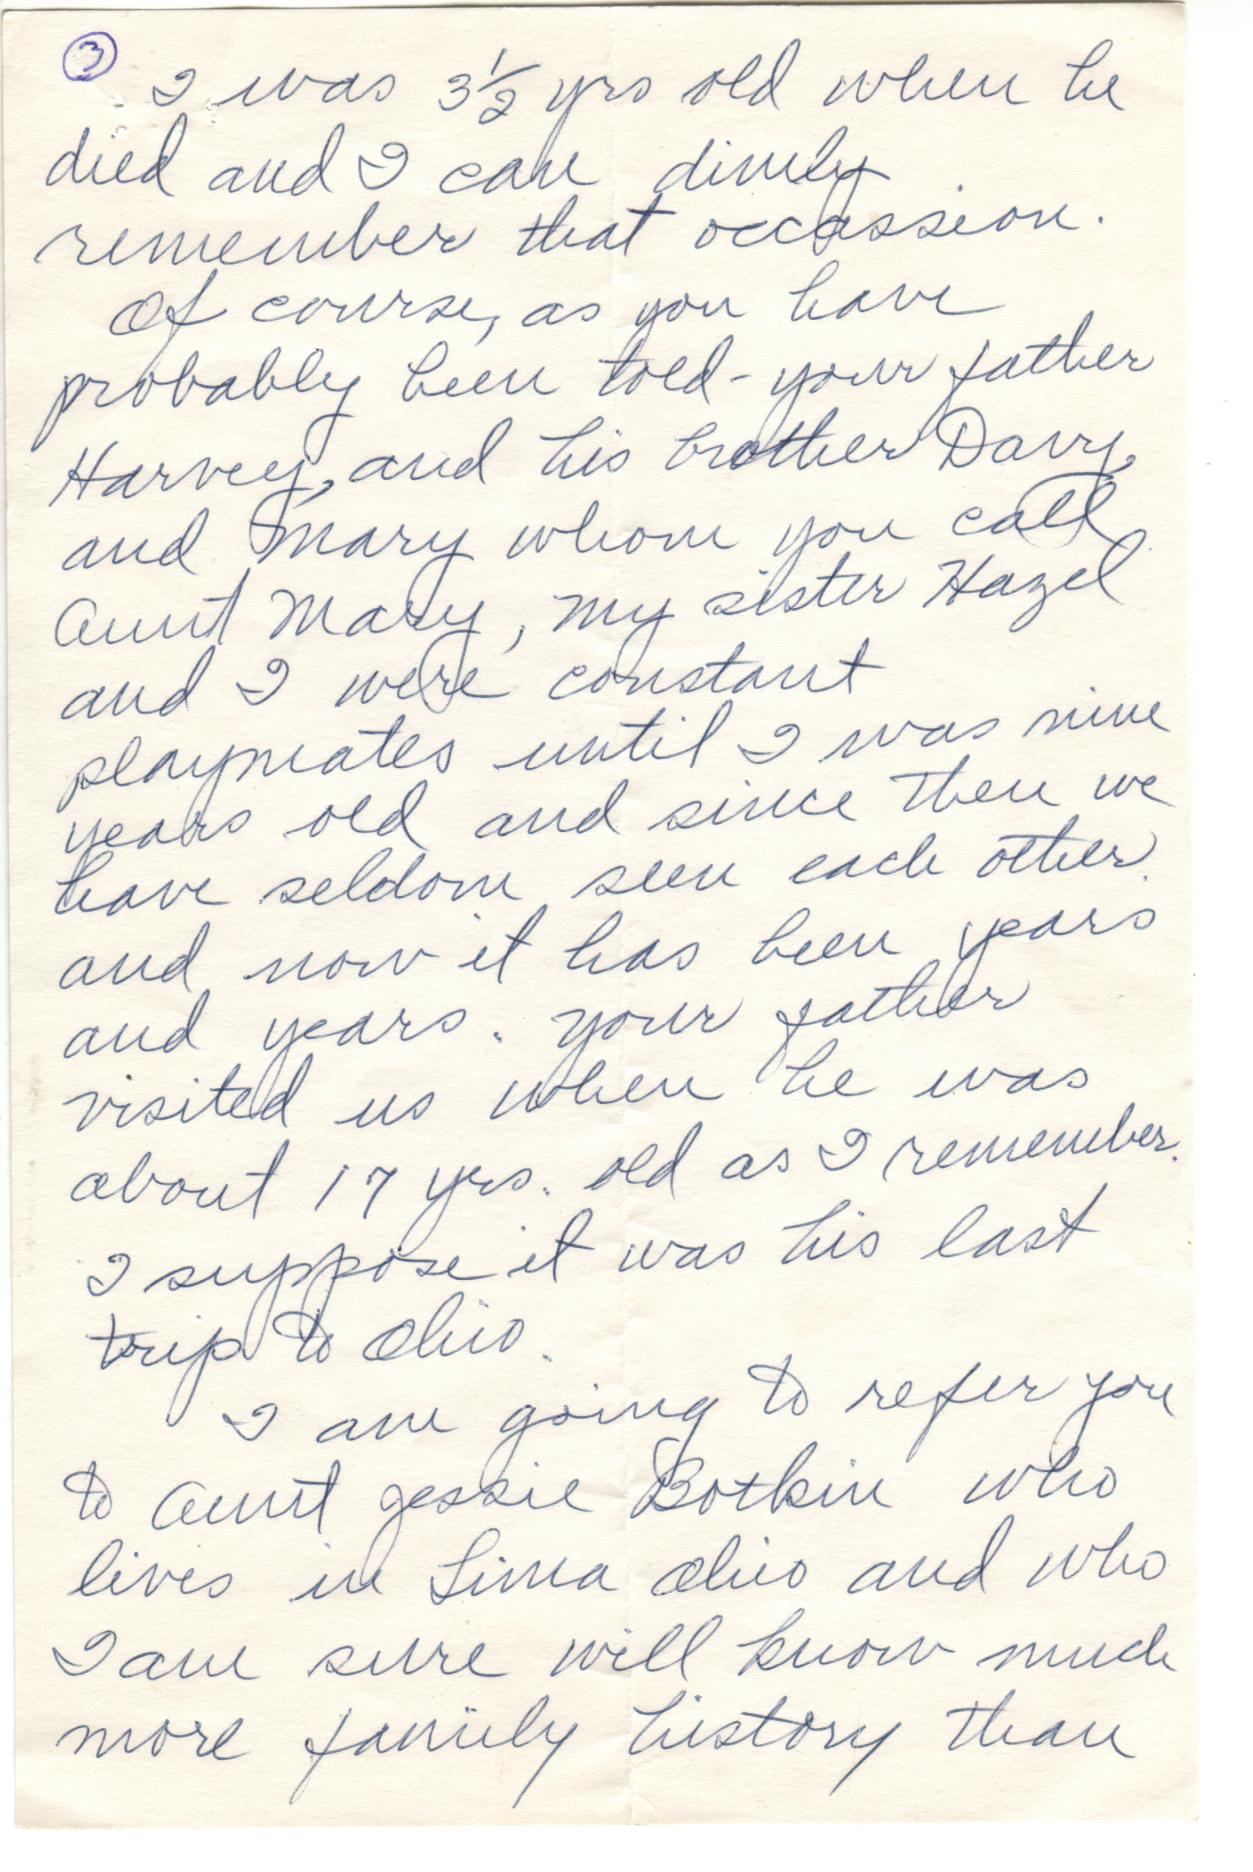 3
I was 3½ yrs old when he
died and I can dimly
remember that occassion.
Of course, as you have
probably been told - your father
Harvey, and his brother Davy,
and Mary whom you call
Aunt Mary, my sister Hazel
and I were constant
playmates until I was nine
years old and since then we
have seldom seen each other.
and now it has been years
and years. Your father
visited us when he was
about 17 yrs. old as I remember.
I suppose it was his last
trip to Ohio.
I am going to refer you
to Aunt Jessie Botkin who
lives in Lima Ohio and who
I am sure will know much
more family history than